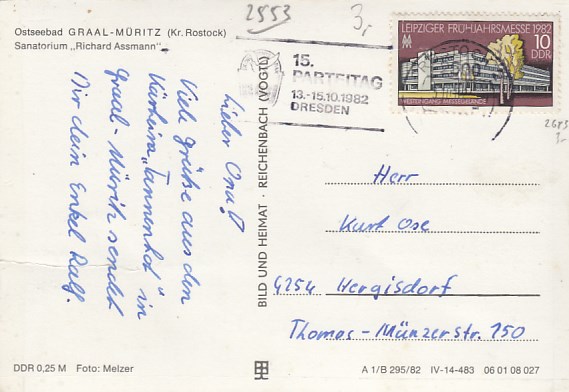 2553
3,-
Ostseebad GRAAL-MÜRITZ (Kr. Rostock)
Sanatorium „Richard Assmann"
LEIPZIGER FRÜHJAHRSMESSE 1982
10
DDR
WESTEINGANG MESSEGELÄNDE
15.
PARTEITAG
13.-15.10.1982
DRESDEN
2553
3,-
Lieber Opa!
Viele Grüße aus dem
Kurheim „Tannenhof" in
Graal-Müritz sendet
Dir dein Enkel Ralf.
BILD UND HEIMAT · REICHENBACH (VOGTL)
Herr
Kurt Ose
4254 Hergisdorf
Thomas-Münzerstr. 150
DDR 0,25 M Foto: Melzer
A 1/B 295/82 IV-14-483 06 01 08 027